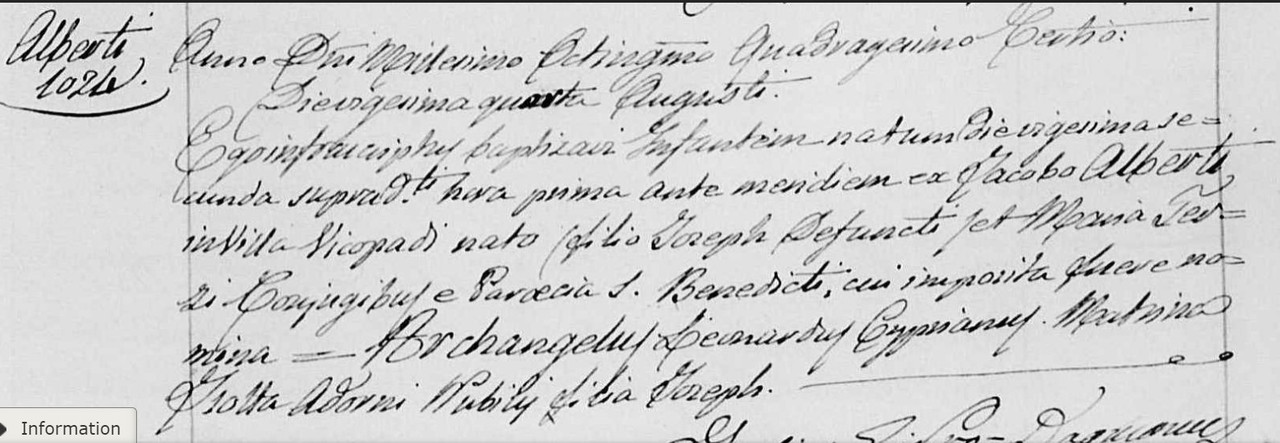 Alberti
1024.
Anno Dni Milesimo Octingmo Quadragesimo Tertio:
Die vigesima quarta Augusti.
Ego infrascriptus baptizavi Infantem natum die vigesima se=
cunda suprad.ti hora prima ante meridiem ex Jacobo Alberti
in Villa Vicopadi nato (filio Joseph Defuncti) et Maria Ter=
zi Conjugibus e Paroecia S. Benedicti, cui imposita fuere no=
mina = Archangelus Leonardus Cyprianus. Matrina
Isotta Adorni Nubilis filia Joseph.
Information